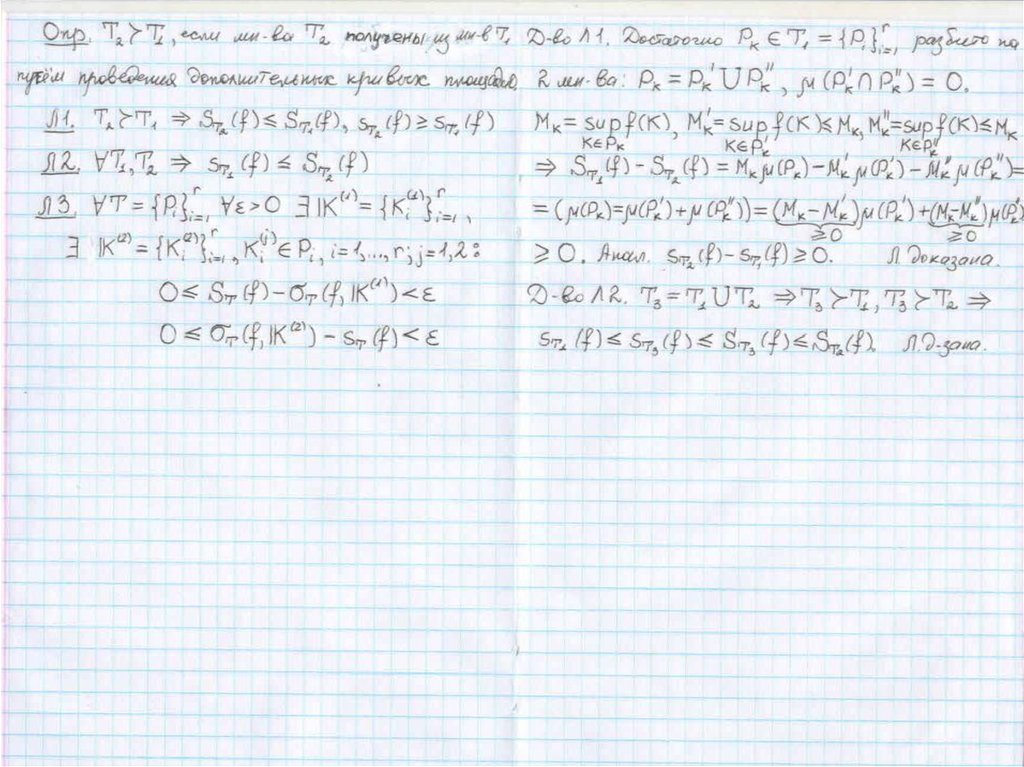 Опр. T₂≻T₁, если мн-ва T₂ получены из мн-в T₁
путём проведения дополнительных кривых площадью
Л1. T₂≻T₁ ⇒ S_T₂(f) ≤ S_T₁(f), s_T₂(f) ≥ s_T₁(f)
Л2. ∀T₁,T₂ ⇒ s_T₁(f) ≤ S_T₂(f)
Л3. ∀T={Pᵢ}ᵢ₌₁ʳ ∀ε>0 ∃ 𝕂⁽¹⁾={Kᵢ⁽¹⁾}ᵢ₌₁ʳ,
∃ 𝕂⁽²⁾={Kᵢ⁽²⁾}ᵢ₌₁ʳ, Kᵢ⁽ʲ⁾∈Pᵢ, i=1,...,r; j=1,2:
0 ≤ S_T(f) − σ_T(f, 𝕂⁽¹⁾) < ε
0 ≤ σ_T(f, 𝕂⁽²⁾) − s_T(f) < ε
Д-во Л1. Достаточно P_k ∈ T₁ = {Pᵢ}ᵢ₌₁ʳ разбито на
2 мн-ва: P_k = P_k' ∪ P_k'', μ(P_k' ∩ P_k'') = 0.
M_k = sup f(K), M_k' = sup f(K) ≤ M_k, M_k'' = sup f(K) ≤ M_k
K∈P_k K∈P_k' K∈P_k''
⇒ S_T₁(f) − S_T₂(f) = M_k μ(P_k) − M_k' μ(P_k') − M_k'' μ(P_k'') =
= (μ(P_k) = μ(P_k') + μ(P_k'')) = (M_k − M_k') μ(P_k') + (M_k − M_k'') μ(P_k'')
≥0 ≥0
≥ 0. Анал. s_T₂(f) − s_T₁(f) ≥ 0. Л. доказана.
Д-во Л2. T₃ = T₁ ∪ T₂ ⇒ T₃≻T₁, T₃≻T₂ ⇒
s_T₁(f) ≤ s_T₃(f) ≤ S_T₃(f) ≤ S_T₂(f). Л. д-зана.